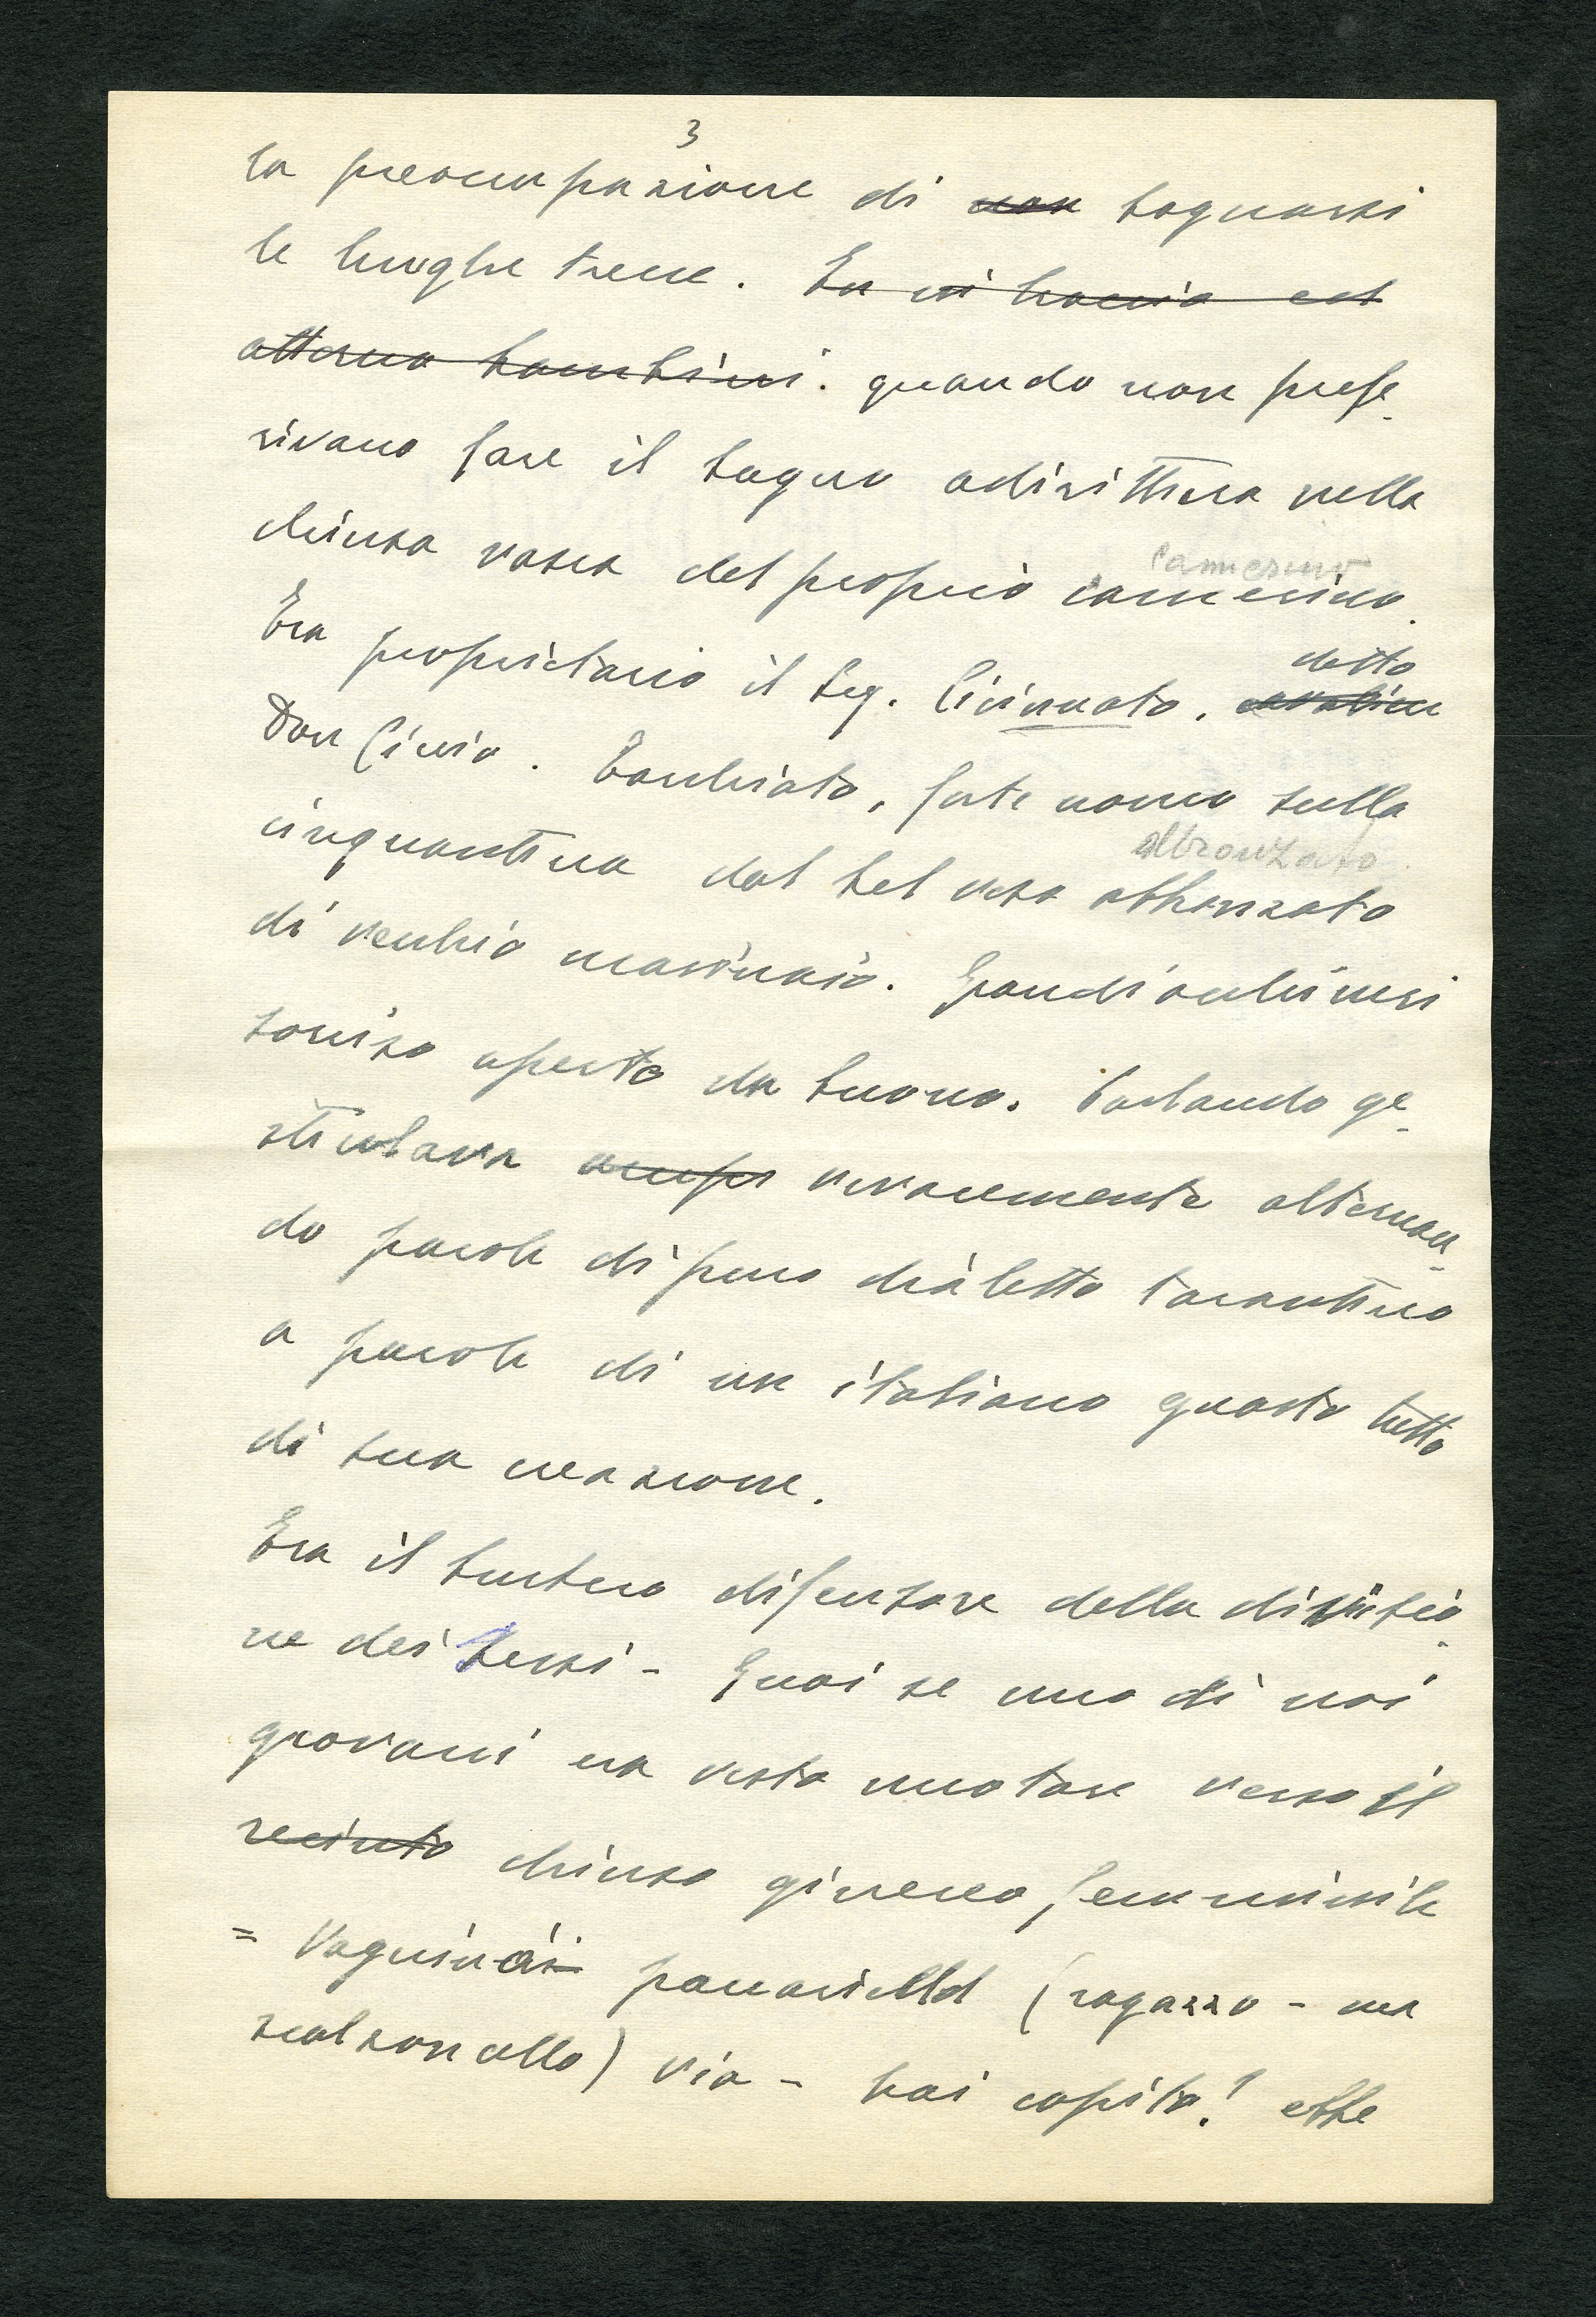 3
la preoccupazione di non bagnarsi
le lunghe trecce. In in braccio ad
attorno bambini. quando non prefe-
rivano fare il bagno adirittura nella
chiusa vasca del proprio camerino.
camerino
Era proprietario il Sig. Cicinnato, detto
Don Ciccio. Tarchiato, forte uomo sulla
cinquantina dal bel viso abbronzato
abbronzato
di vecchio marinaio. Grandi occhi neri
sorriso aperto da buono. Parlando ge-
sticolava vivacemente alternan-
do parole di puro dialetto tarantino
a parole di un italiano guasto tutto
di sua creazione.
Era il burbero difensore della divisio-
ne dei sessi - Guai se uno di noi
giovani era visto nuotare verso il
recinto chiuso gineceo femminile
= Vagnino panariello (ragazzo - un
scalzoncello) via - hai capito! ebbe